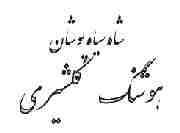 شاه سیاه پوشان
هوشنگ گلشیری